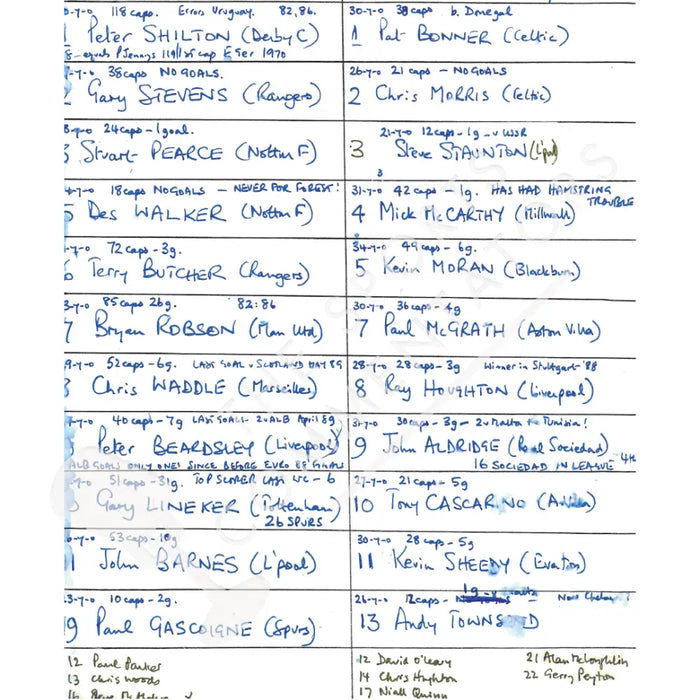 0-7-0 118 caps. Errors Uruguay. 82,86.
1 Peter SHILTON (Derby C)
8-equals P Jennings 119 1st cap E Ger 1970
7-7-0 38 caps NO GOALS.
2 Gary STEVENS (Rangers)
8-7-0 24 caps - 1 goal.
3 Stuart PEARCE (Nottm F)
4-7-0 18 caps NO GOALS - NEVER FOR FOREST!
5 Des WALKER (Nottm F)
-7-0 72 caps - 3g.
6 Terry BUTCHER (Rangers)
3-7-0 85 caps 26g. 82:86
7 Bryan ROBSON (Man Utd)
9-7-0 52 caps - 6g. LAST GOAL v SCOTLAND MAY 89
8 Chris WADDLE (Marseilles)
-7-0 40 caps - 7g LAST GOALS - 2 v ALB April 89
Peter BEARDSLEY (Liverpool)
ALB GOALS ONLY ONES SINCE BEFORE EURO 88 FINALS
-7-0 51 caps - 31g. TOP SCORER LAST WC - 6
Gary LINEKER (Tottenham)
26 SPURS
-7-0 53 caps - 10g
11 John BARNES (L'pool)
3-7-0 10 caps - 2g.
19 Paul GASCOIGNE (Spurs)
12 Paul Parker
13 Chris Woods
16 Steve McMahon
30-7-0 38 caps b. Donegal
1 Pat BONNER (Celtic)
26-7-0 21 caps - NO GOALS
2 Chris MORRIS (Celtic)
21-7-0 12 caps - 1g - v USSR
3 Steve STAUNTON (L'pool)
31-7-0 42 caps - 1g. HAS HAD HAMSTRING TROUBLE
4 Mick McCARTHY (Millwall)
34-7-0 49 caps - 6g.
5 Kevin MORAN (Blackburn)
30-7-0 36 caps - 4g
7 Paul McGRATH (Aston Villa)
28-7-0 28 caps - 3g Winner in Stuttgart '88
8 Ray HOUGHTON (Liverpool)
31-7-0 30 caps - 3g - 2 v Malta + Tunisia!
9 John ALDRIDGE (Real Sociedad)
16 SOCIEDAD IN LEAGUE 4th
27-7-0 21 caps - 5g
10 Tony CASCARINO (A Villa)
30-7-0 28 caps - 5g
11 Kevin SHEEDY (Everton)
26-7-0 12 caps - 1g - v
13 Andy TOWNSEND
12 David O'Leary
14 Chris Hughton
17 Niall Quinn
21 Alan McLoughlin
22 Gerry Peyton
THE SPORTS COMMENTATORS